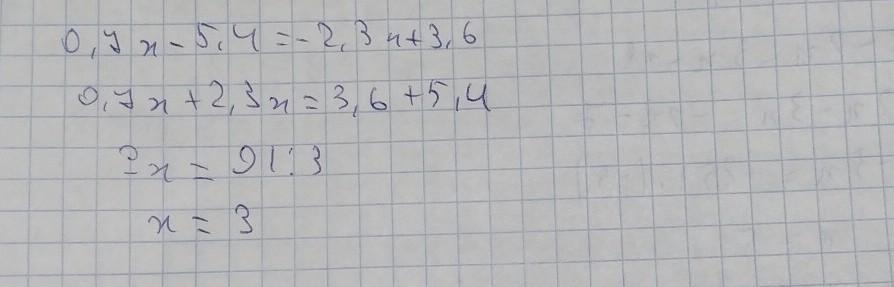 0,7x - 5,4 = -2,3x + 3,6
0,7x + 2,3x = 3,6 + 5,4
3x = 9 | : 3
x = 3